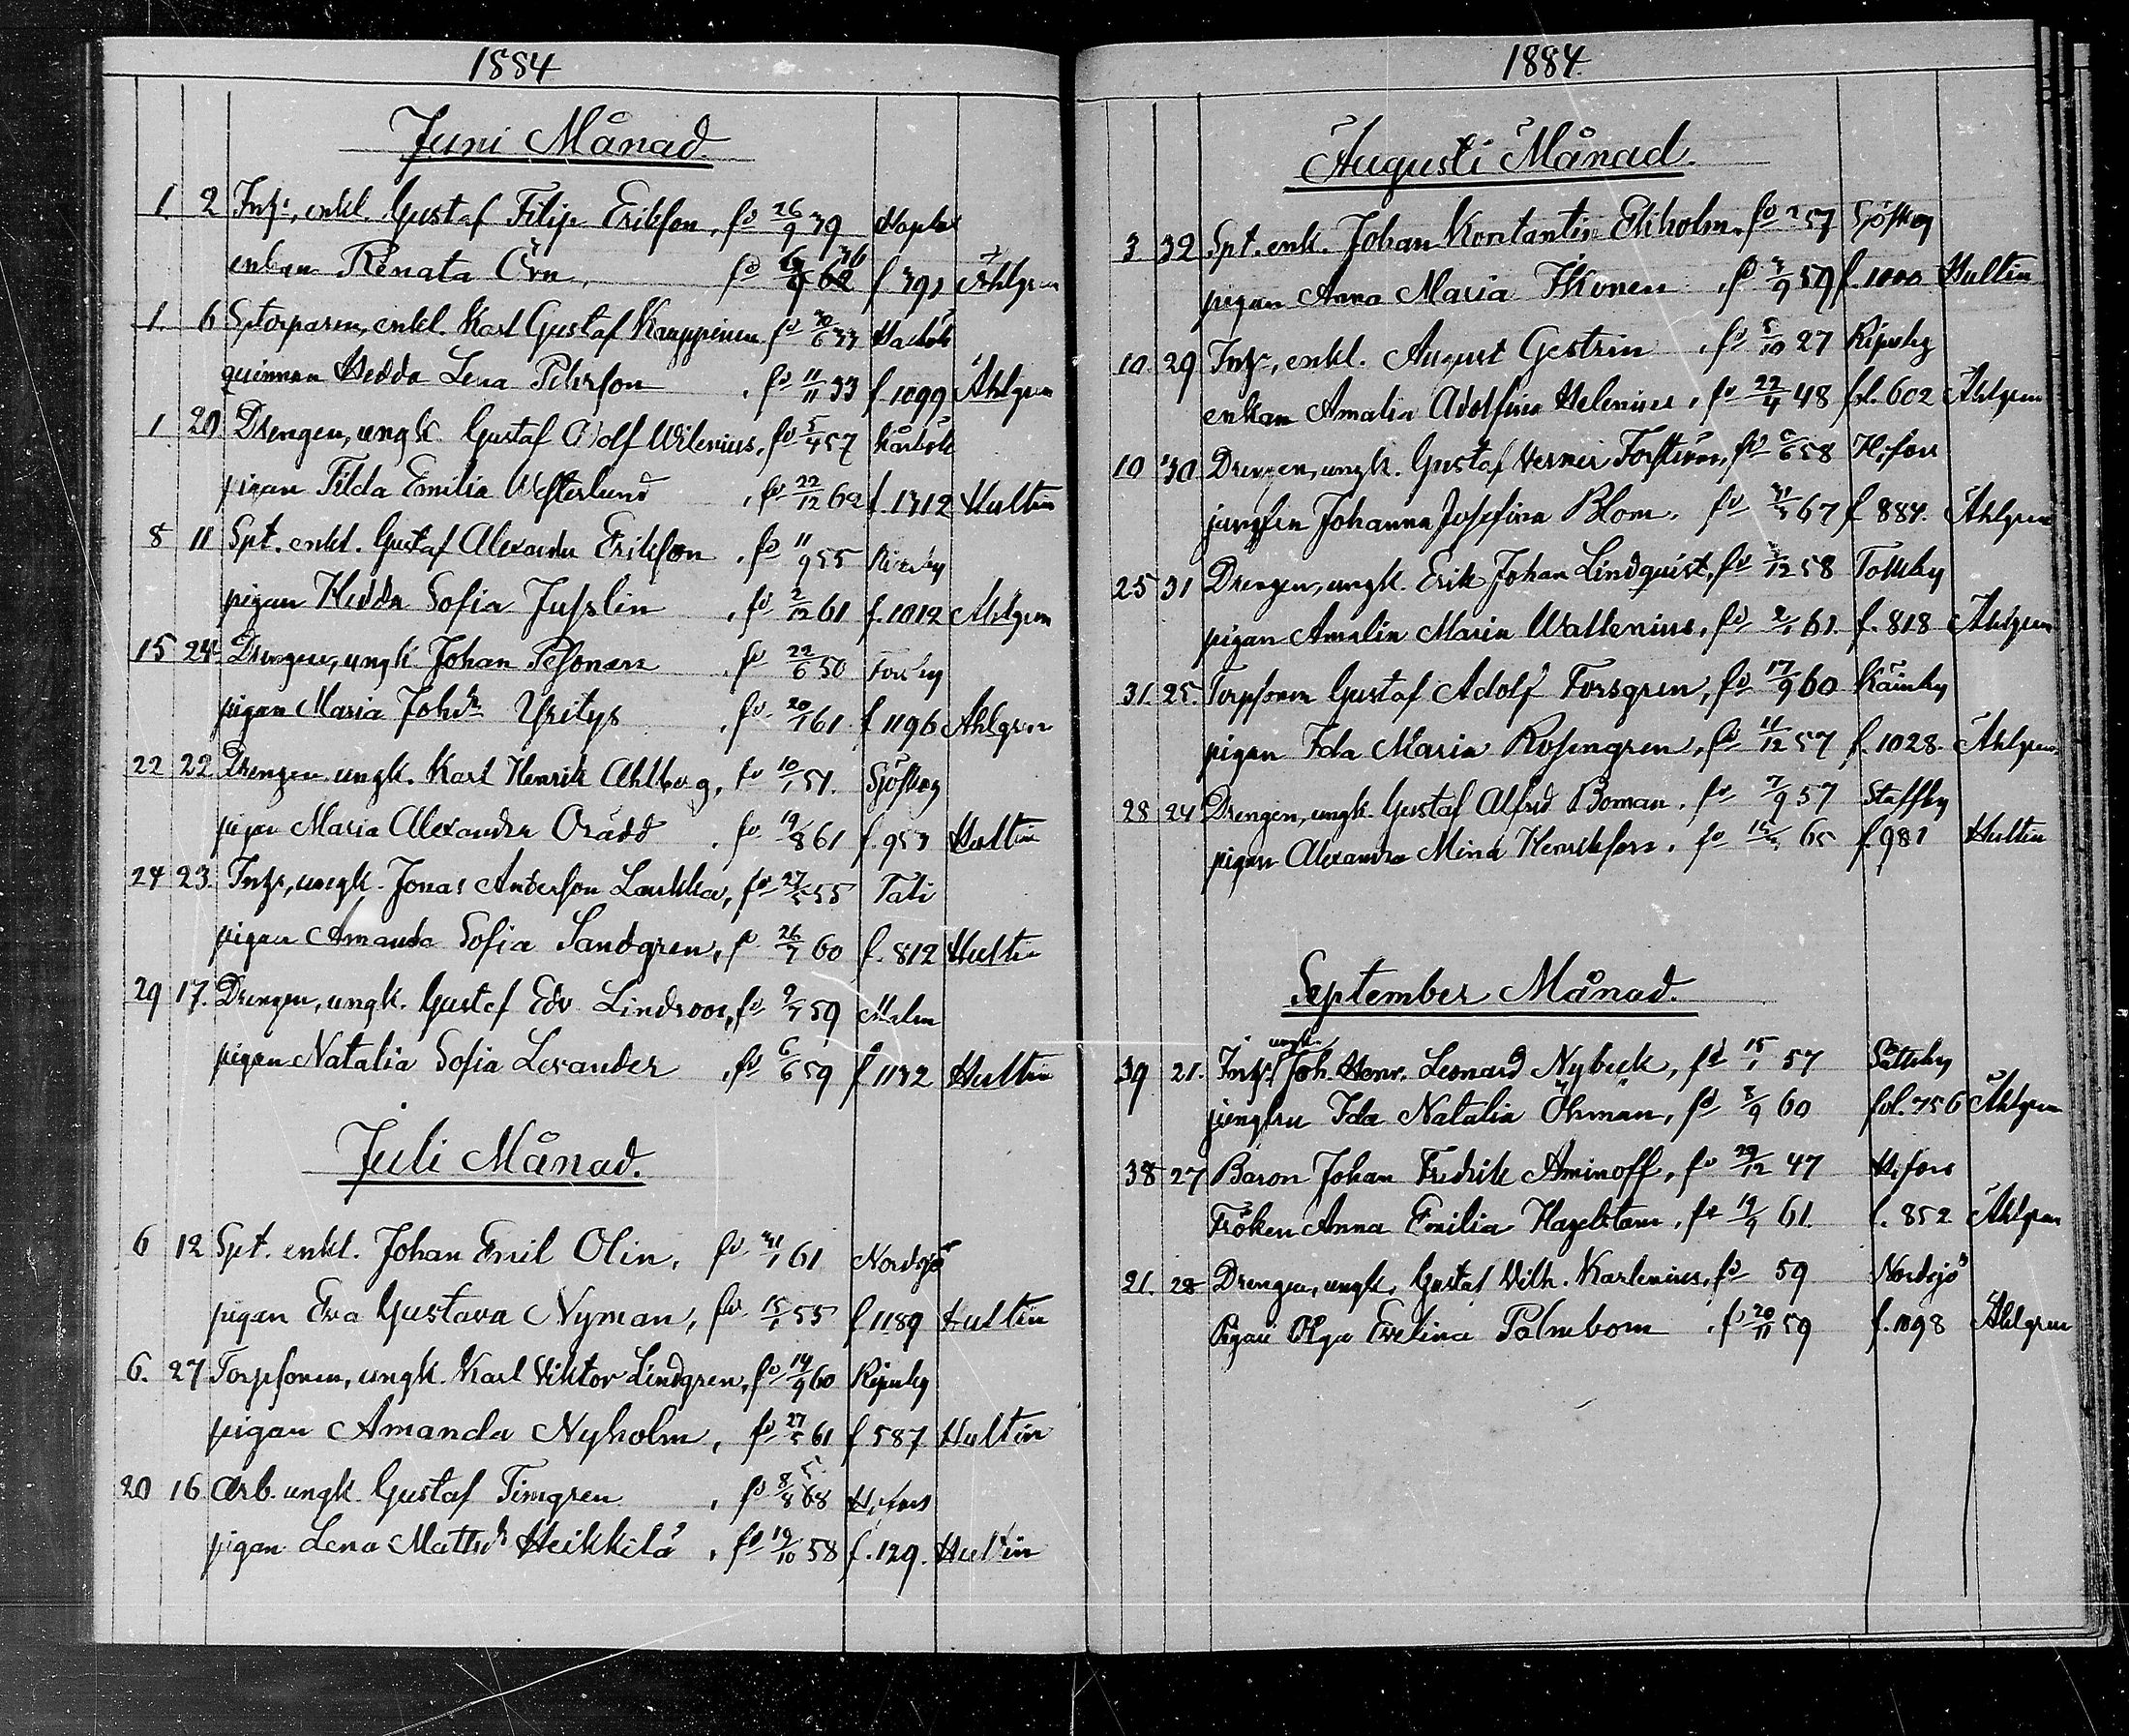 1884
Juni Månad.
1. 2 Inh., enkl. Gustaf Filip Erikson, fd 26/9 39
enkan Renata Örn, fd 62 36 f 391 Åhlgren
1. 6 Storparen, enkl. Karl Gustaf Kauppinen fd 30/6 33
qvinnan Hedda Lena Pehrson, fd 11/11 33 f 1099 Åhlgren
1 20 Drengen, ungk. Gustaf Adolf Wilenius, fd 5/4 57 Kårböle
pigan Filda Emilia Westerlund, fd 22/12 62 f. 1312 Hultin
8 11 Spt. enkl. Gustaf Alexander Erikson, fd 11/9 55
pigan Hedda Sofia Jusslin, fd 2/12 61 f. 1012 Åhlgren
15 24 Drengen, ungk. Johan Pesonen, fd 22/6 50
pigan Maria Johdr Yritys, fd 20/1 61 f 1196 Åhlgren
22 22 Drengen ungk. Karl Henrik Ahlberg, fd 10/1 51. Sjöskog
pigan Maria Alexandra Orädd, fd 19/8 61 f. 953 Hultin
24 23. Inh., ungk. Jonas Anderson Laukka, fd 27/5 55 Tali
pigan Amanda Sofia Sandgren, fd 26/7 60 f. 812 Hultin
29 17. Drengen, ungk. Gustaf Edv. Lindroos, fd 9/7 59 Malm
pigan Natalia Sofia Levander, fd 6/6 59 f 1132 Hultin
Juli Månad.
6 12 Spt. enkl. Johan Emil Olin, fd 31/1 61 Nordsjö
pigan Eva Gustava Nyman, fd 15/1 55 f 1189 Hultin
6. 27 Torpsonen, ungk. Karl Viktor Lindgren, fd 14/9 60 Ripuby
pigan Amanda Nyholm, fd 27/5 61 f 587 Hultin
20 16 Arb. ungk. Gustaf Timgren, fd 8/8 68 5 H.fors
pigan Lena Mattsdr Heikkilä, fd 19/10 58 f. 129. Hultin
1884.
Augusti Månad.
3 32 Spt. enk. Johan Konstantin Ekholm, fd 57 Sjöskog
pigan Anna Maria Ikonen, fd 3/9 59 f. 1000 Hultin
10. 29 Inh., enkl. August Gestrin, fd 5/10 27 Ripuby
enkan Amalia Adolfina Helenius, fd 22/4 48 fol. 602 Åhlgren
10 30. Drengen, ungk. Gustaf Verner Forsström, fd 6/6 58 H.fors
jungfrun Johanna Josefina Blom, fd 67 f 884. Åhlgren
25 31 Drengen, ungk. Erik Johan Lindquist, fd 58 Tomby
pigan Amalia Maria Wallenius, fd 2/1 61. f. 818 Åhlgren
31. 25. Torpsonen Gustaf Adolf Forsgren, fd 17/9 60
pigan Ida Maria Rosengren, fd 11/12 57 f. 1028. Åhlgren
28 24 Drengen, ungk. Gustaf Alfred Boman, fd 7/9 57 Staffby
pigan Alexandra Mina Henrikson, fd 65 f. 981 Hultin
September Månad.
39 21. Inh. ungk. Joh. Henr. Leonard Nybeck, fd 15/1 57
jungfru Ida Natalia Öhman, fd 8/9 60 fol. 756 Åhlgren
38 27 Baron Johan Fredrik Aminoff, fd 29/12 47 H.fors
Fröken Anna Emilia Hagelstam, fd 19/9 61. f. 852 Åhlgren
21. 28 Drengen, ungk. Gustaf Vilh. Karlenius, fd 59 Nordsjö
Pigan Olga Evelina Palmbom, fd 20/11 59 f. 1098 Åhlgren